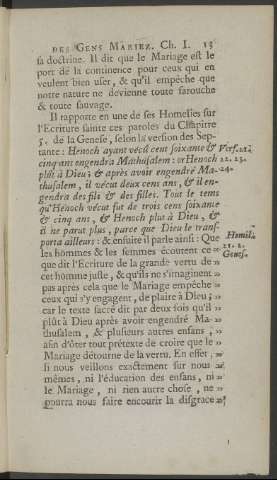 DES GENS MARIEZ. Ch. I. 13
sa doctrine. Il dit que le Mariage est le
port de la continence pour ceux qui en
veulent bien user, & qu'il empêche que
notre nature ne devienne toute farouche
& toute sauvage.
Il rapporte en une de ses Homelies sur
l'Ecriture sainte ces paroles du Chapitre
5. de la Genese, selon la version des Sep-
tante: Henoch ayant vécu cent soixante & Vers. 21.
cinq ans engendra Mathusalem: or Henoch 22. 23.
plût à Dieu; & après avoir engendré Ma- 24.
thusalem, il vécut deux cens ans, & il en-
gendra des fils & des filles. Tout le tems
qu'Henoch vécut fut de trois cens soixante
& cinq ans, & Henoch plut à Dieu, &
il ne parut plus, parce que Dieu le trans-
porta ailleurs: & ensuite il parle ainsi: Que Homil.
les hommes & les femmes écoutent ce » 21. in
que dit l'Ecriture de la grande vertu de » Genes.
cet homme juste, & qu'ils ne s'imaginent »
pas après cela que le Mariage empêche »
ceux qui s'y engagent, de plaire à Dieu; »
car le texte sacré dit par deux fois qu'il »
plût à Dieu après avoir engendré Ma- »
thusalem, & plusieurs autres enfans, »
afin d'ôter tout prétexte de croire que le »
Mariage détourne de la vertu. En effet, »
si nous veillons exactement sur nous »
mêmes, ni l'éducation des enfans, ni »
le Mariage, ni rien autre chose, ne »
pourra nous faire encourir la disgrace »